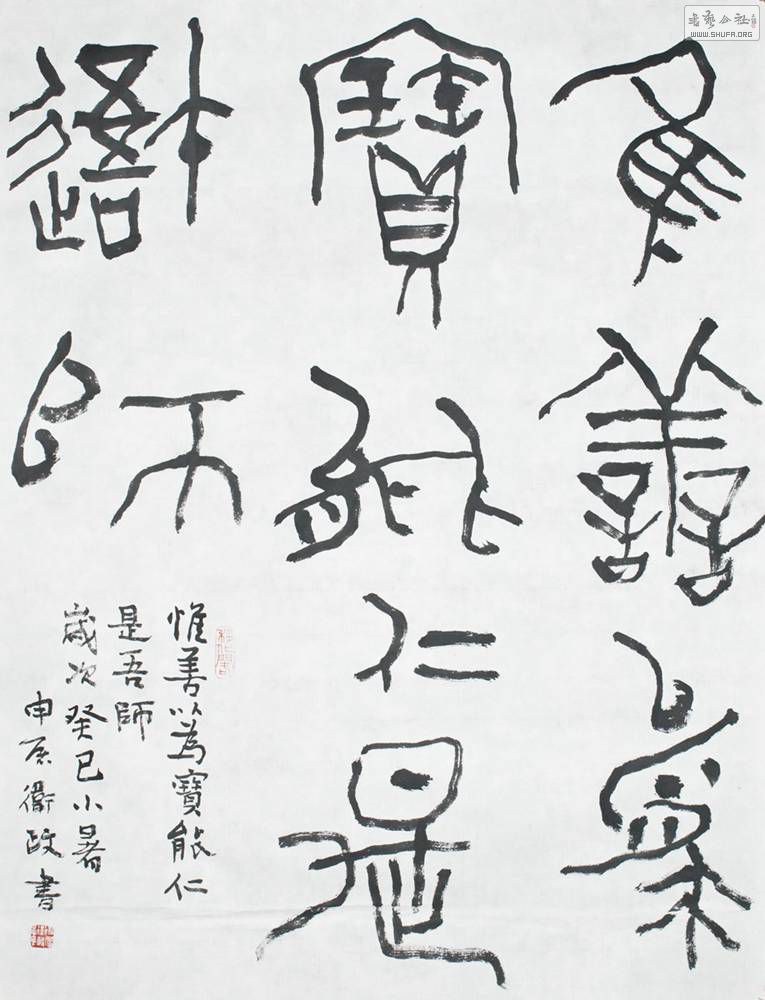 隹善以爲
寶能仁是
吾師
惟善以為寶能仁
是吾師
歲次癸巳小暑
申衛政書
書藝公社
WWW.SHUFA.ORG